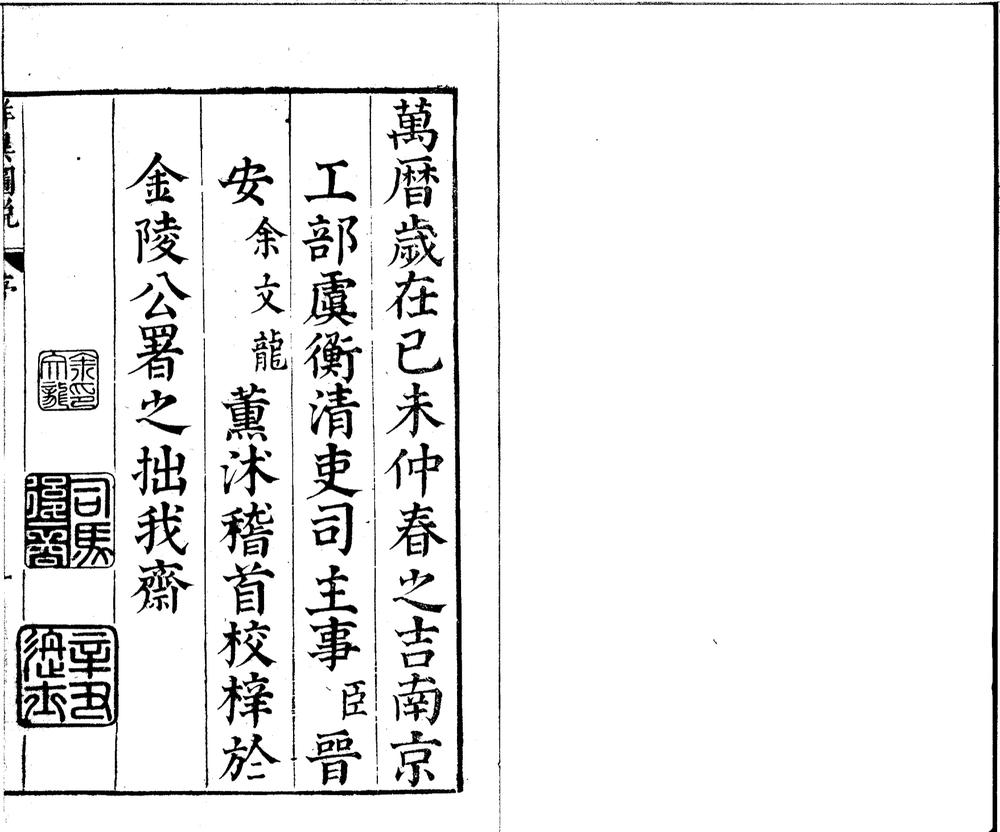 萬曆歲在已未仲春之吉南京
工部虞衡清吏司主事臣晉
安余文龍薰沐稽首校梓於
金陵公署之拙我齋
余文龍印